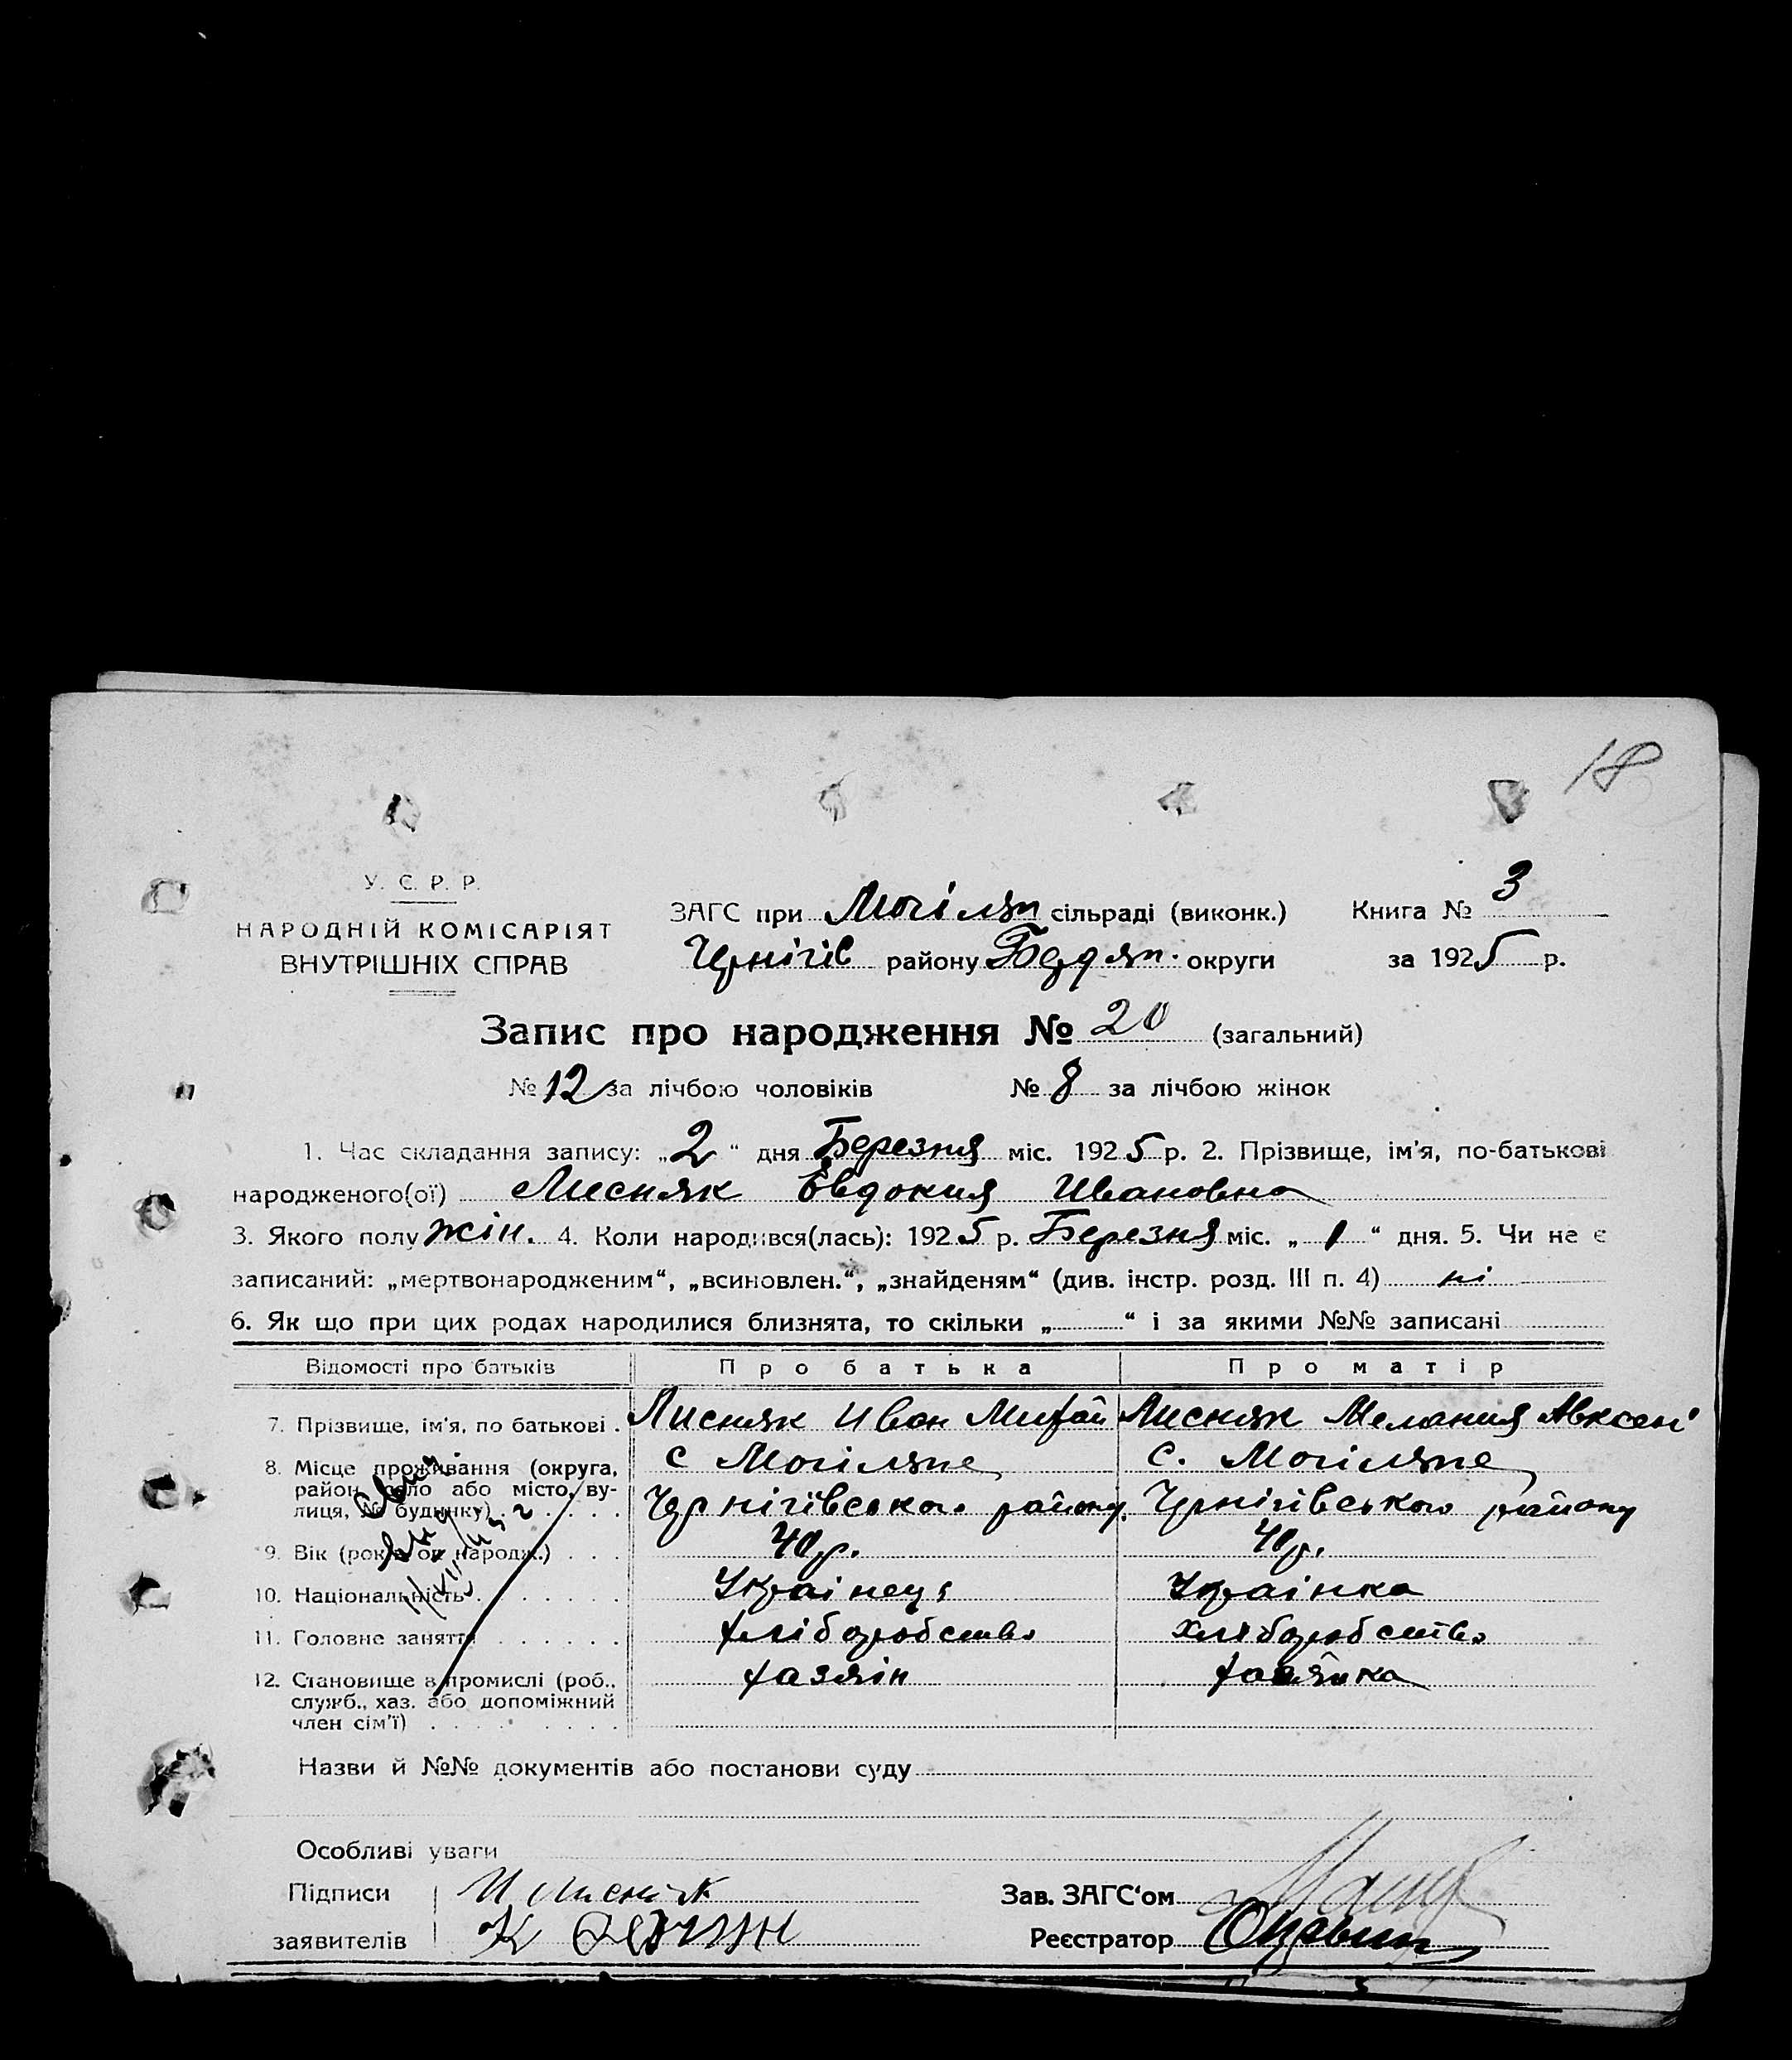 18
У. С. Р. Р.
НАРОДНІЙ КОМІСАРІЯТ
ВНУТРІШНІХ СПРАВ
ЗАГС при Могілян сільраді (виконк.) Книга № 3
Чернігів району Бердян. округи за 1925 р.
Запис про народження № 20 (загальний)
№ 12 за лічбою чоловіків № 8 за лічбою жінок
1. Час складання запису: „2“ дня Березня міс. 1925 р. 2. Прізвище, ім'я, по-батькові
народженого(ої) Лисняк Евдокия Ивановна
3. Якого полу жін. 4. Коли народився(лась): 1925 р. Березня міс. „1“ дня. 5. Чи не є
записаний: „мертвонародженим“, „всиновлен.“, „знайденям“ (див. інстр. розд. III п. 4) ні
6. Як що при цих родах народилися близнята, то скільки „ “ і за якими №№ записані
Відомості про батьків Про батька Про матір
7. Прізвище, ім'я, по батькові . Лисняк Иван Михай Лисняк Мелания Авксен
8. Місце проживання (округа, с Могіляне с. Могіляне
район, село або місто, ву-
лиця, № будинку) . . . . Чернігівського району. Чернігівського району
9. Вік (років од народж.) . . . 40 р. 40 р.
10. Національність . . . . . . Українець Українка
11. Головне заняття . . . . . . хліборобство хліборобство
12. Становище в промислі (роб., хазяїн хазяйка
служб., хаз. або допоміжний
член сім'ї) . . . . . . . .
Назви й №№ документів або постанови суду
Особливі уваги
Підписи И Лисняк Зав. ЗАГС'ом
заявителів К Реєстратор